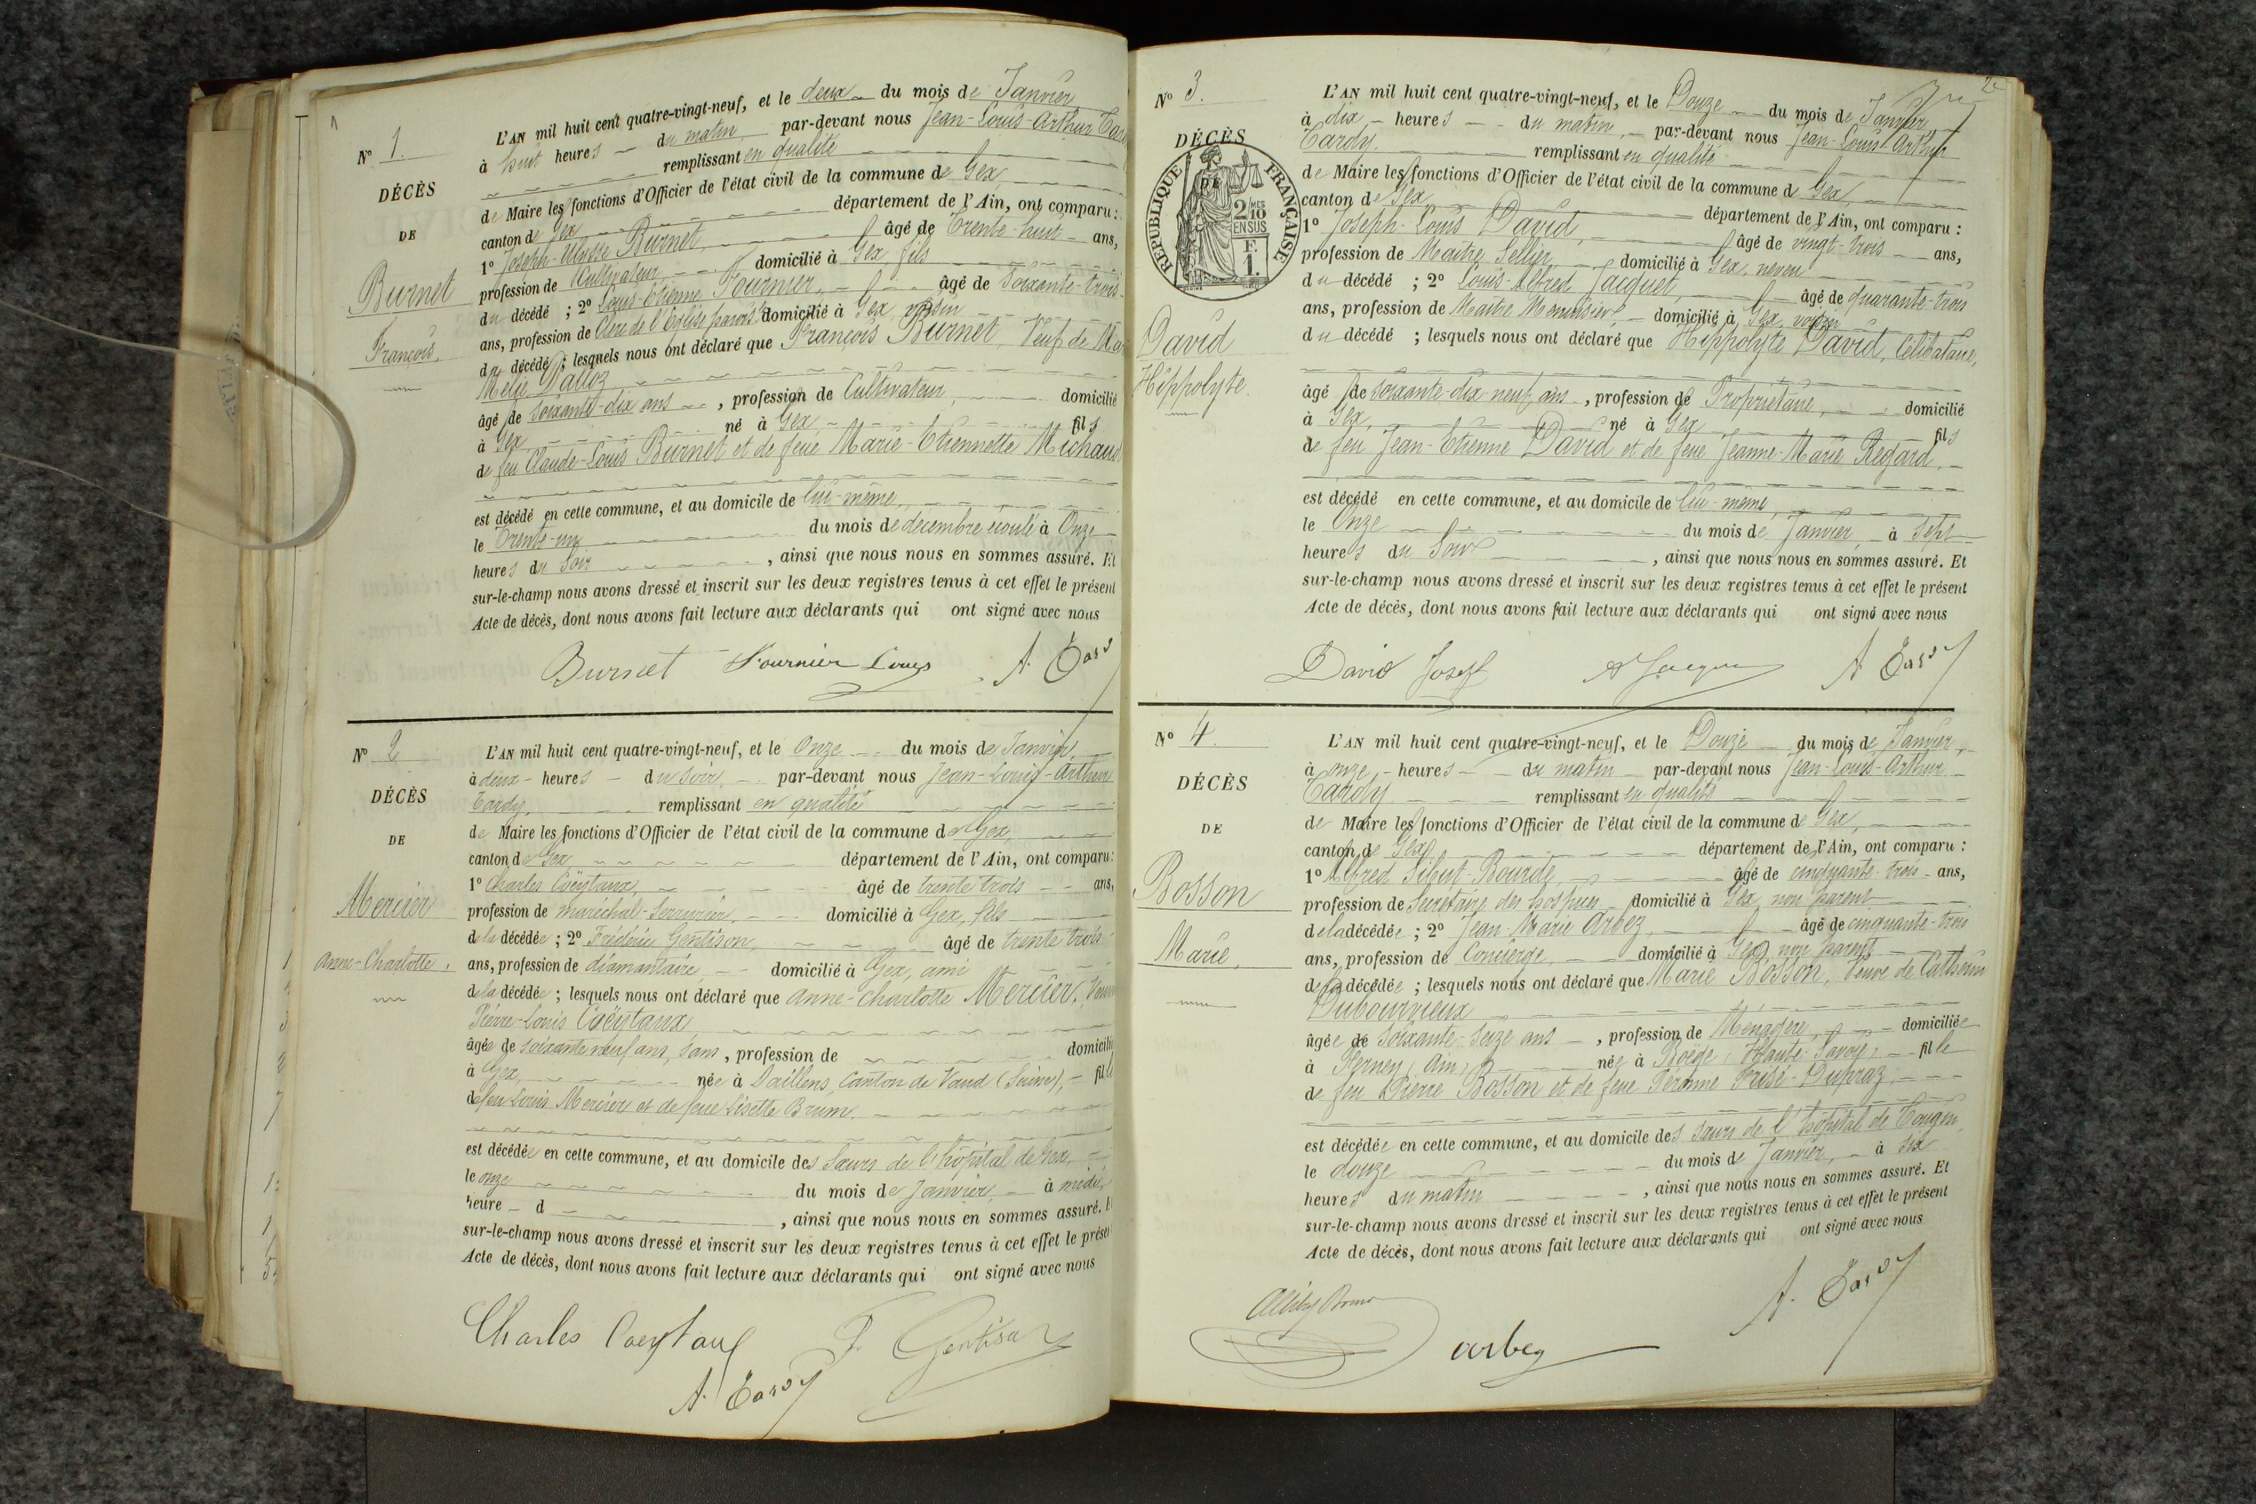 Nº 1.
DÉCÈS
DE
Burnet
François.
L'AN mil huit cent quatre-vingt-neuf, et le deux du mois de Janvier
à huit heures du matin par-devant nous Jean-Louis-Arthur
remplissant en qualité
de Maire les fonctions d'Officier de l'état civil de la commune de Gex,
canton de Gex département de l'Ain, ont comparu :
1º Joseph-Ulysse Burnet, âgé de Trente-huit ans,
profession de Cultivateur, domicilié à Gex, fils
du décédé ; 2º Louis-Etienne Fournier, âgé de Soixante-trois
ans, profession de Clerc de l'Eglise paroisse domicilié à Gex voisin
du décédé ; lesquels nous ont déclaré que François Burnet, Veuf de
Mélie Dalloz
âgé de soixante-dix ans, profession de Cultivateur, domicilié
à Gex, né à Gex, fils
de feu Claude-Louis Burnet et de feue Marie-Etiennette Michaud
est décédé en cette commune, et au domicile de lui-même,
le Trente-un du mois de décembre écoulé à Onze
heures du Soir, ainsi que nous nous en sommes assuré. Et
sur-le-champ nous avons dressé et inscrit sur les deux registres tenus à cet effet le présent
Acte de décès, dont nous avons fait lecture aux déclarants qui ont signé avec nous
Burnet Fournier Louis A. Tardy
Nº 2
DÉCÈS
DE
Mercier
Anne-Charlotte.
L'AN mil huit cent quatre-vingt-neuf, et le Onze du mois de Janvier
à deux heures du soir, par-devant nous Jean-Louis-Arthur
Tardy, remplissant en qualité
de Maire les fonctions d'Officier de l'état civil de la commune de Gex,
canton de Gex département de l'Ain, ont comparu :
1º Charles Coëytaux, âgé de trente trois ans,
profession de maréchal-serrurier, domicilié à Gex, fils
de la décédée ; 2º Frédéric Gentison, âgé de trente trois
ans, profession de diamantaire domicilié à Gex, ami
de la décédée ; lesquels nous ont déclaré que Anne-Charlotte Mercier,
Pierre-Louis Coëytaux
âgée de soixante neuf ans, sans, profession de domicilié
à Gex, née à Daillens, Canton de Vaud (Suisse), fille
de feu Louis Mercier et de feue Lisette Brum.
est décédée en cette commune, et au domicile des Sœurs de l'hôpital de Gex,
le onze du mois de Janvier, à midi,
heure d , ainsi que nous nous en sommes assuré. Et
sur-le-champ nous avons dressé et inscrit sur les deux registres tenus à cet effet le présent
Acte de décès, dont nous avons fait lecture aux déclarants qui ont signé avec nous
Charles Coeytaux F. Gentison
A. Tardy
2
Nº 3.
DÉCÈS
DE
RÉPUBLIQUE FRANÇAISE
2/10 MES
EN SUS
F.
1.
David
Hippolyte.
L'AN mil huit cent quatre-vingt-neuf, et le Douze du mois de Janvier,
à dix heures du matin, par-devant nous Jean-Louis-Arthur
Tardy, remplissant en qualité
de Maire les fonctions d'Officier de l'état civil de la commune de Gex,
canton de Gex département de l'Ain, ont comparu :
1º Joseph-Louis David, âgé de vingt-trois ans,
profession de Maître Sellier, domicilié à Gex, neveu
du décédé ; 2º Louis-Alfred Jacquet, âgé de quarante-trois
ans, profession de Maître Menuisier domicilié à Gex, voisin
du décédé ; lesquels nous ont déclaré que Hippolyte David, Célibataire,
âgé de soixante-dix neuf ans, profession de Propriétaire, domicilié
à Gex, né à Gex fils
de feu Jean-Etienne David et de feue Jeanne-Marie Regard.
est décédé en cette commune, et au domicile de lui-même,
le Onze du mois de Janvier à Sept
heures du Soir, ainsi que nous nous en sommes assuré. Et
sur-le-champ nous avons dressé et inscrit sur les deux registres tenus à cet effet le présent
Acte de décès, dont nous avons fait lecture aux déclarants qui ont signé avec nous
David Josef A Jacquet A Tardy
Nº 4.
DÉCÈS
DE
Bosson
Marie,
L'AN mil huit cent quatre-vingt-neuf, et le Douze du mois de Janvier,
à onze heures du matin par-devant nous Jean-Louis-Arthur
Tardy remplissant en qualité
de Maire les fonctions d'Officier de l'état civil de la commune de Gex,
canton de Gex département de l'Ain, ont comparu :
1º Alfred Sibut-Bourde, âgé de cinquante-trois ans,
profession de Secrétaire des hospices domicilié à Gex, non parent
de la décédée ; 2º Jean-Marie Arbez, âgé de cinquante-trois
ans, profession de Concierge, domicilié à Gex, non parent
de la décédée ; lesquels nous ont déclaré que Marie Bosson, Veuve de
Dubouvrieux
âgée de soixante-seize ans, profession de Ménagère, domiciliée
à Ferney, Ain, née à Boëge, Haute-Savoie, fille
de feu Pierre Bosson et de feue Péronne Frisé-Dupraz,
est décédée en cette commune, et au domicile des sœurs de l'hôpital de Tougin,
le douze du mois de Janvier, à six
heures du matin, ainsi que nous nous en sommes assuré. Et
sur-le-champ nous avons dressé et inscrit sur les deux registres tenus à cet effet le présent
Acte de décès, dont nous avons fait lecture aux déclarants qui ont signé avec nous
arbez A. Tardy